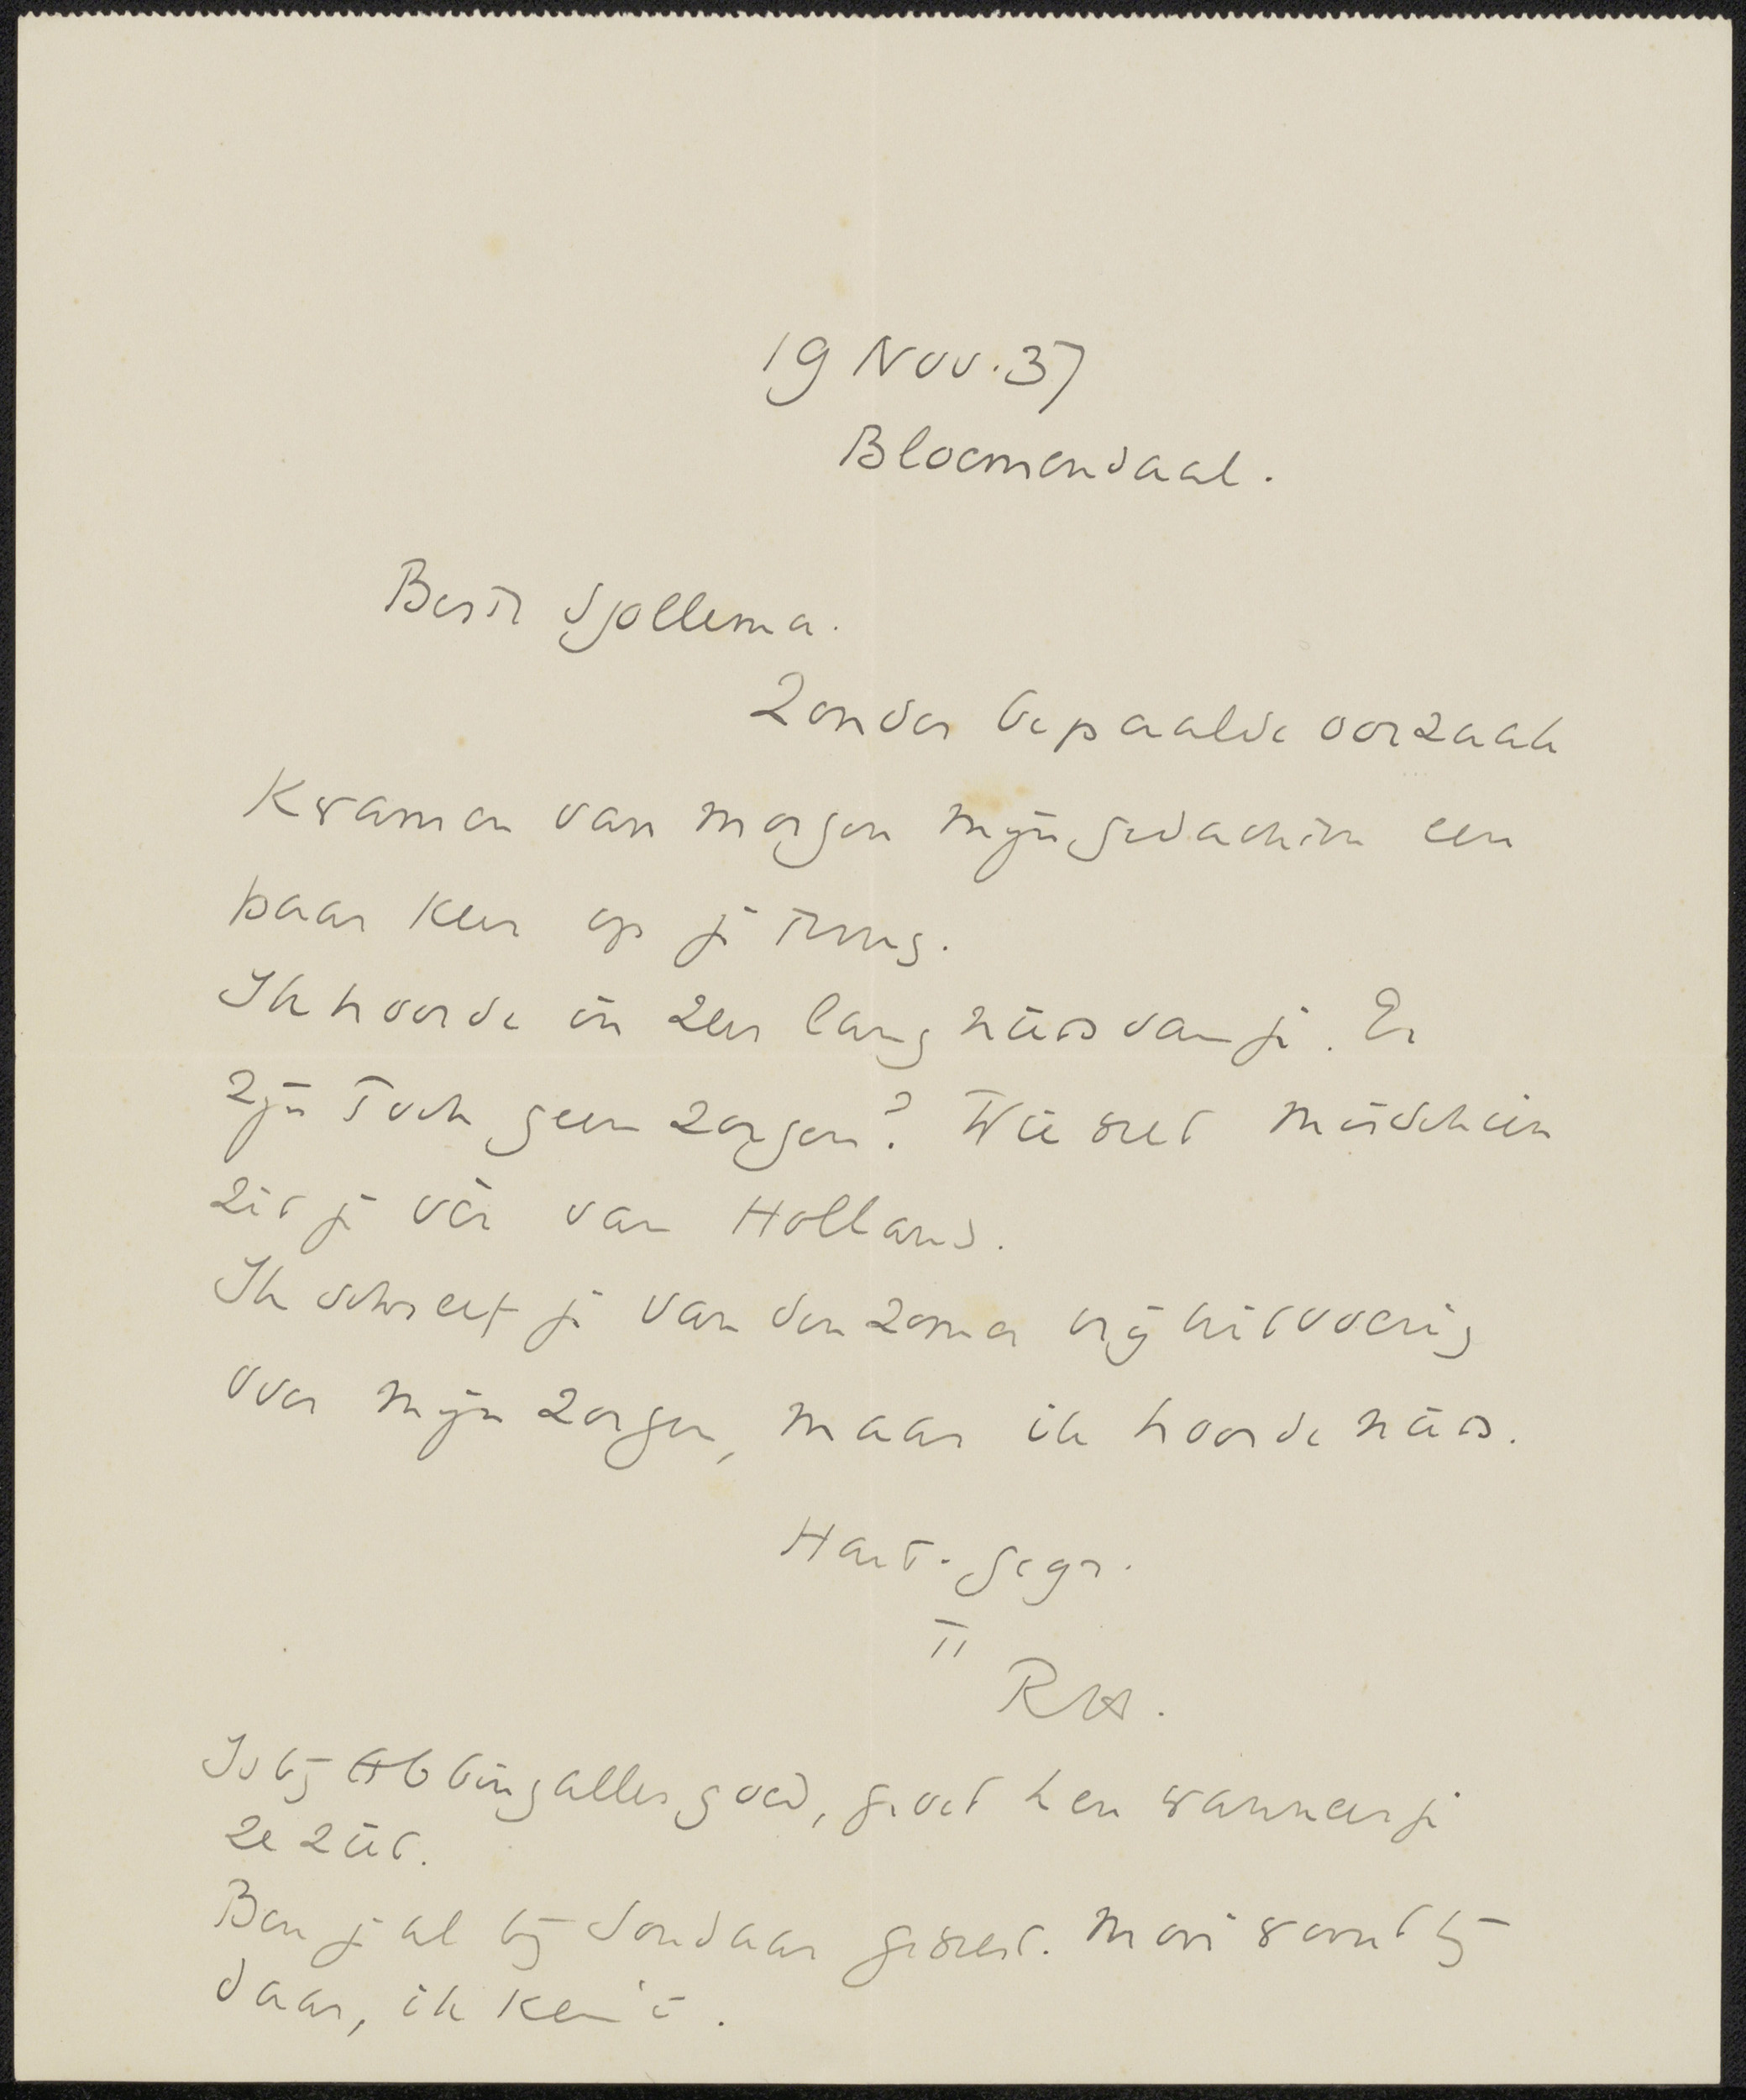 19 Nov. 37
Bloemendaal.
Beste Sjollema.
Zonder bepaalde oorzaak
Kwamen van morgen mijn gedachten een
paar keer op je terug.
Ik hoorde in zeer lang niets van je. Er
zijn toch geen zorgen? Wie weet misschien
zit je ver van Holland.
Ik schreef je van den zomer vrij uitvoerig
over mijn zorgen, maar ik hoorde niets.
Hart. gegr.
tt
RH.
Is bij Abbing alles goed, groet hen wanneer je
ze ziet.
Ben je al bij Sondaar geweest. Mooi woont hij
daar, ik ken 't.